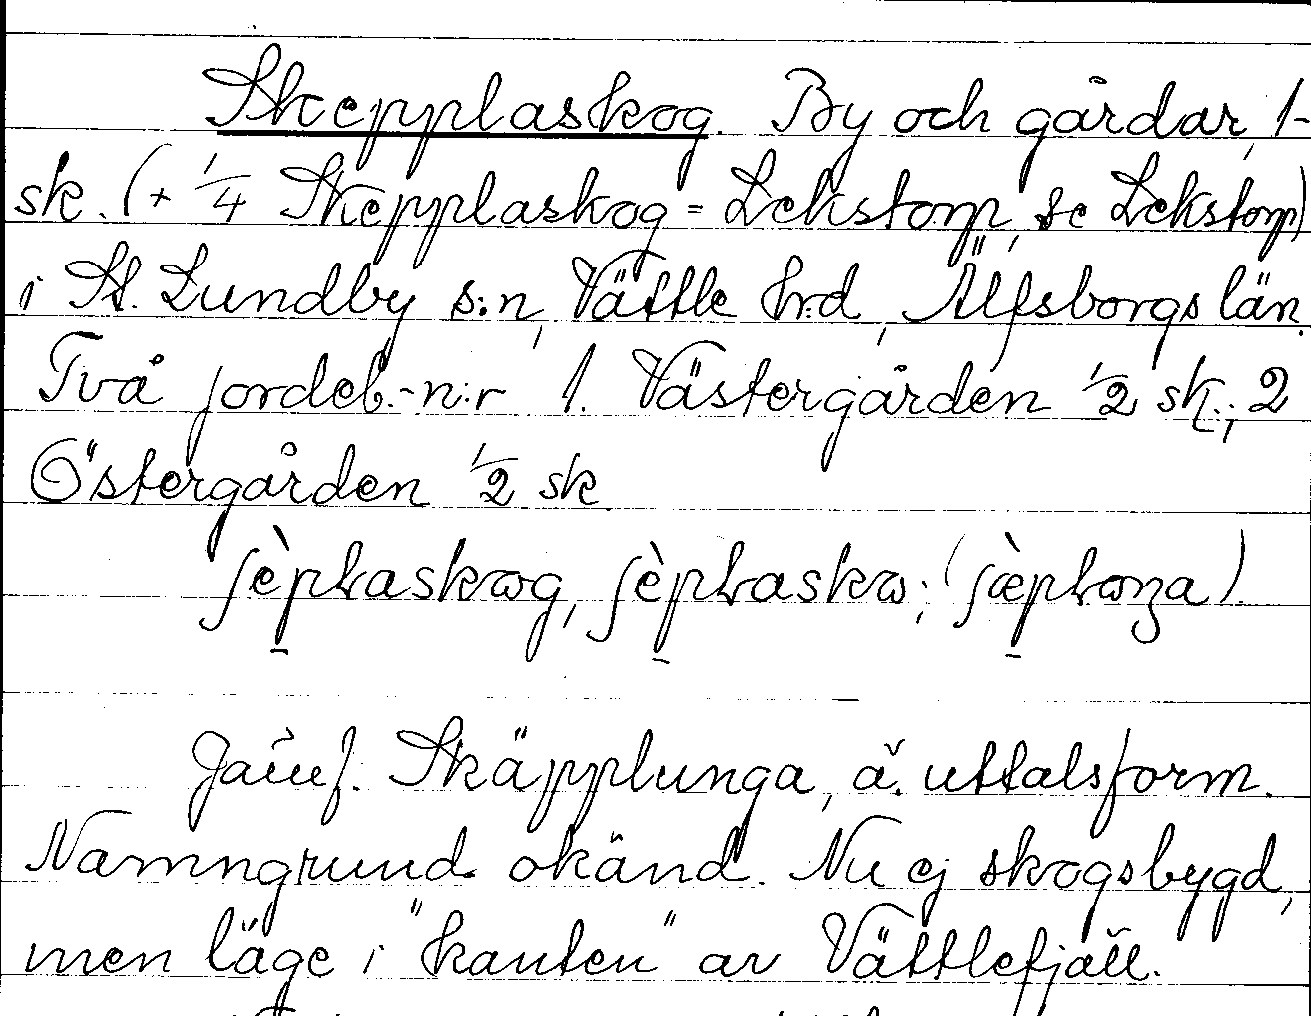 Skepplaskog. By och gårdar, 1-
sk. (+ 1/4 Skepplaskog = Lekstorp, se Lekstorp)
i St. Lundby s:n, Vättle h:d, Älfsborgs län.
Två jordeb.-n:r 1. Västergården 1/2 sk.; 2
Östergården 1/2 sk.
Jämf. Skäpplunga, ä. uttalsform.
Namngrund okänd. Nu ej skogsbygd,
men läge i "kanten" av Vättlefjäll.